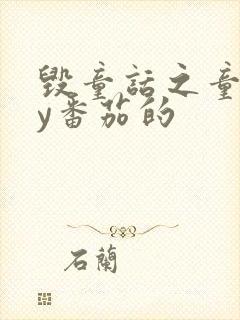 毁童话之童
y番茄的
石蘭